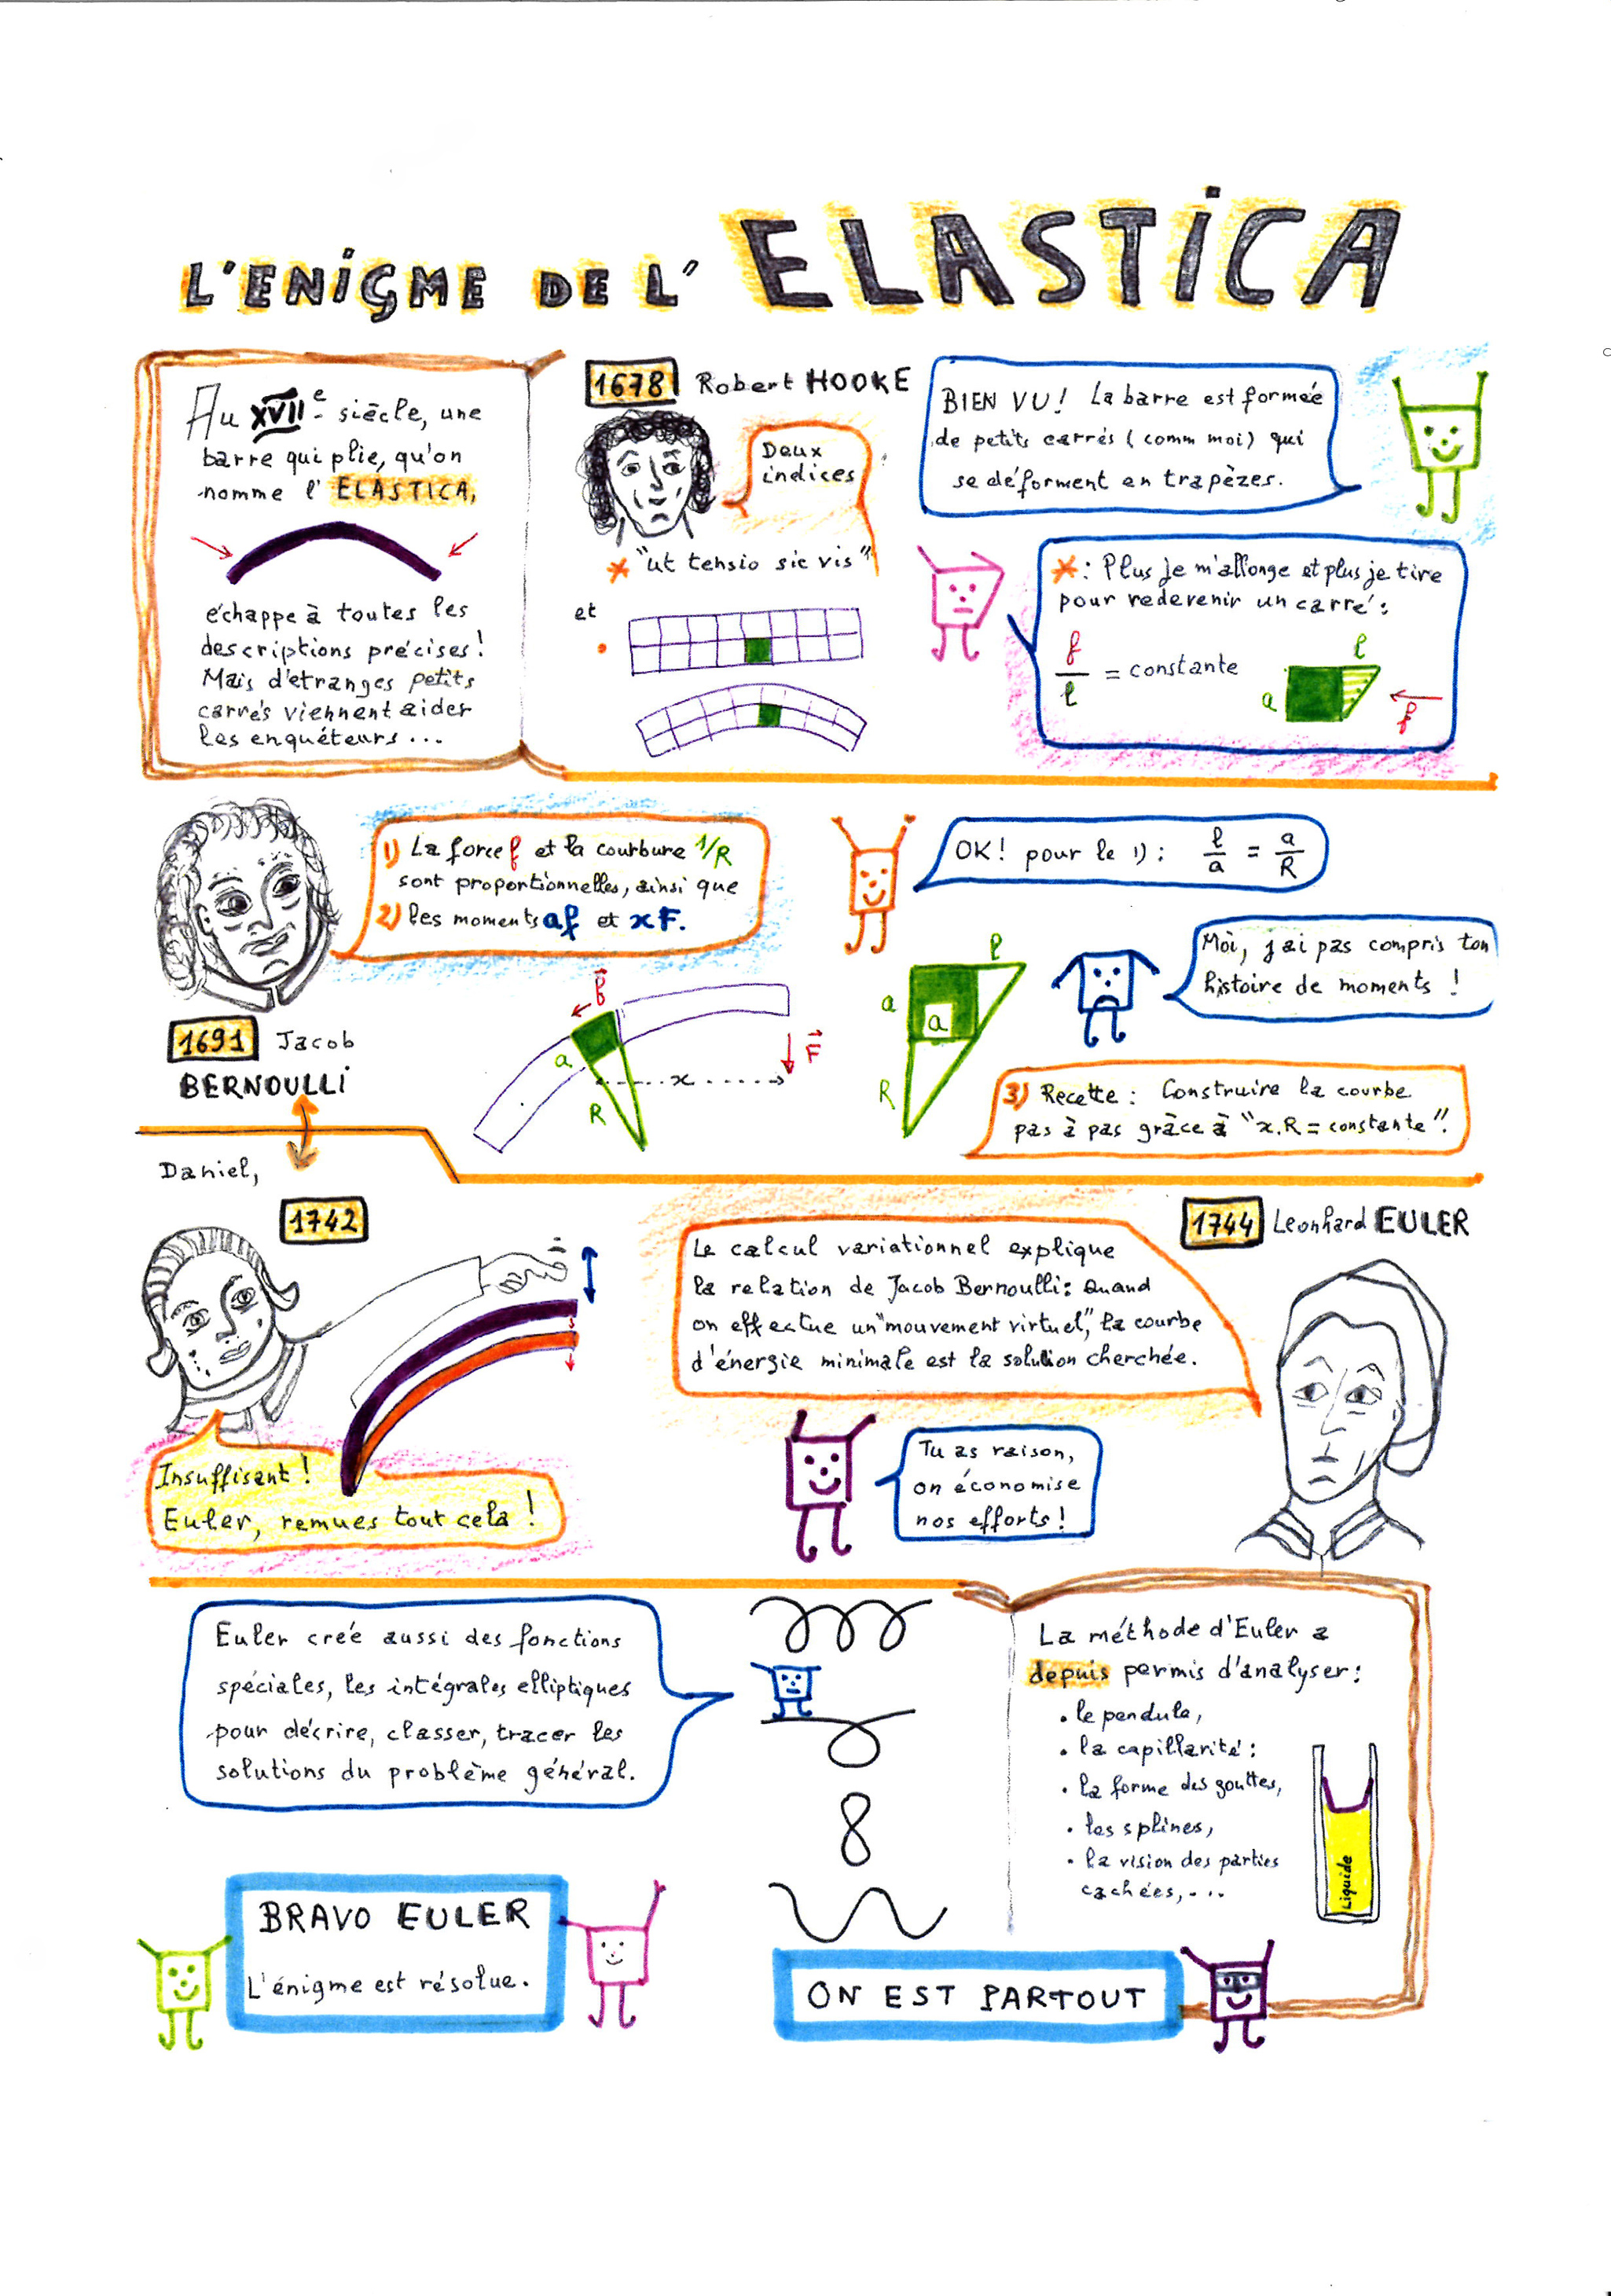 L'ENIGME DE L' ELASTICA
Au XVIIe siècle, une
barre qui plie, qu'on
nomme l' ELASTICA,
échappe à toutes les
descriptions précises!
Mais d'etranges petits
carrés viennent aider
les enquêteurs ...
1678 Robert HOOKE
Deux
indices
* "ut tensio sic vis"
et
BIEN VU! La barre est formée
de petits carrés (comm moi) qui
se déforment en trapèzes.
* : Plus je m'allonge et plus je tire
pour redevenir un carré :
f
l
= constante
l
a
f
1) La force f et la courbure 1/R
sont proportionnelles, ainsi que
2) les moments af et xF.
1691 Jacob
BERNOULLI
f
a
R
x
F
OK! pour le 1) : l/a = a/R
l
a
a
R
Moi, j'ai pas compris ton
histoire de moments !
3) Recette : Construire la courbe
pas à pas grâce à "x.R = constante".
Daniel,
1742
Insuffisant !
Euler, remues tout cela !
1744 Leonhard EULER
Le calcul variationnel explique
la relation de Jacob Bernoulli: Quand
on effectue un "mouvement virtuel", la courbe
d'énergie minimale est la solution cherchée.
Tu as raison,
on économise
nos efforts !
Euler crée aussi des fonctions
spéciales, les intégrales elliptiques
pour décrire, classer, tracer les
solutions du problème général.
La méthode d'Euler a
depuis permis d'analyser :
• le pendule,
• la capillarité :
• la forme des gouttes,
• les splines,
• la vision des parties
cachées, ...
Liquide
BRAVO EULER
L'énigme est résolue.
ON EST PARTOUT